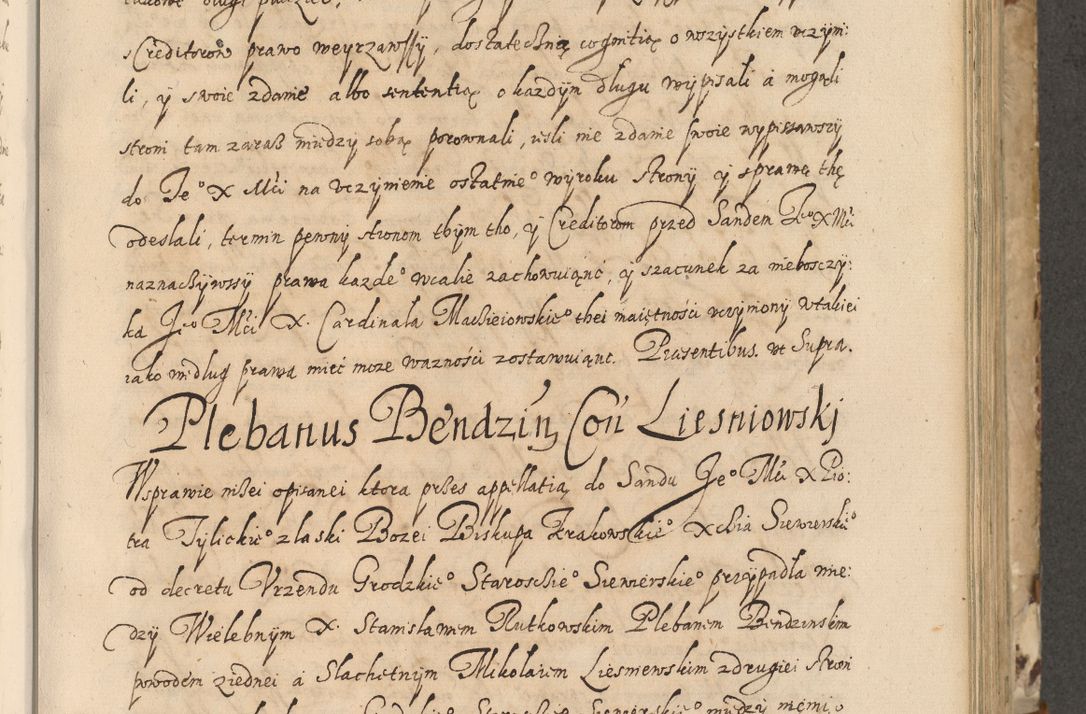 s Creditorow prawo weyrzawssy, dostatechnią cognitią o wszystkiem uczyni:
li, y swoie zdanie albo sententią o każdym dlugu wypisali a mogąli
stroni tam zaraß miedzy sobą porownali, iesli nie zdanie swoie wypissawszy
do Je° X Mći na uczynienie ostatnie° wyroku strony y sprawę thę
odeslali, termin pewny stronom tbym tho, y Creditorom przed Sandem Je° X Mći
naznachywssy prawa kazde° wcalie zachowuiąnć, y szacunek za niebosczy:
ka Je° Mći X. Cardinala Machieiowskie° thei maiętności uczyniony w takiei
iako wedlug prawa mieć może ważności zostawuiąnc. Præsentibus. ut Supra.
Plebanus Bendzin Con Liesniowski
W sprawie niżei opisanei ktora przes appellatią do Sandu Je° Mći X Pio:
tra Tylickie° z laski Bozei Biskupa Krakowskie° Xcbia Siewierskie°
od decretu Vrzendu Grodzkie° Staroschie° Siewierskie° przypadła mie:
dzy Wielebnym X. Stanisławem Rutkowskim Plebanem Bendzinskim
powodem z iednei a Slachetnym Mikolaiem Liesniewskim z drugiei stroni